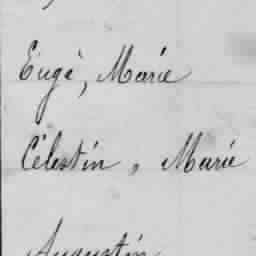 Eugè, Marie
Célestin, Marie
Augustin